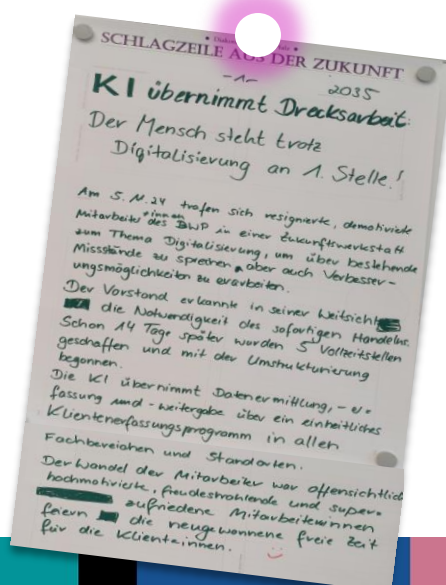 SCHLAGZEILE AUS DER ZUKUNFT
-1-
2035
KI übernimmt Drecksarbeit:
Der Mensch steht trotz
Digitalisierung an 1. Stelle!
Am 5.11.24 trafen sich resignierte, demotivierte
Mitarbeiter*innen des BWP in einer Zukunftswerkstatt
zum Thema Digitalisierung, um über bestehende
Missstände zu sprechen, aber auch Verbesser-
ungsmöglichkeiten zu erarbeiten.
Der Vorstand erkannte in seiner Weitsicht
die Notwendigkeit des sofortigen Handelns.
Schon 14 Tage später wurden 5 Vollzeitstellen
geschaffen und mit der Umstrukturierung
begonnen.
Die KI übernimmt Datenermittlung, -er-
fassung und -weitergabe über ein einheitliches
Klientenerfassungsprogramm in allen
Fachbereichen und Standorten.
Der Wandel der Mitarbeiter war offensichtlich
hochmotivierte, freudestrahlende und super-
zufriedene Mitarbeiterinnen
feiern die neugewonnene freie Zeit
für die Klient*innen.